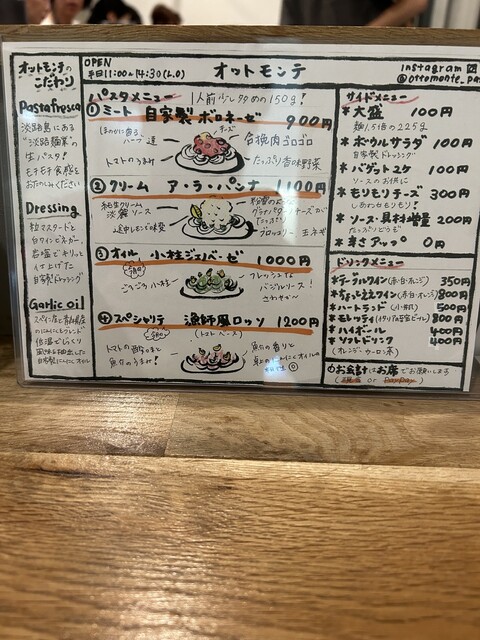 オットモンテの
こだわり
Pastafresca
淡路島にある
"淡路麺業"の
生パスタ!
モチモチ食感を
おたのしみください
Dressing
粒マスタードと
白ワインビネガー
岩塩でキリっと
仕上げた
自家製ドレッシング
Garlic oil
低温でじっくり
OPEN
平日11:00〜14:30(L.O)
オットモンテ
パスタメニュー
1人前少し多めの150g!
①ミート 自家製ボロネーゼ 900円
チーズ
合挽肉ゴロゴロ
トマトのうまみ
たっぷり香味野菜
②クリーム ア・ラ・パンナ 1100円
淡麗ソース
ブロッコリー 玉ネギ
③オイル 小柱ジェノベーゼ 1000円
フレッシュな
バジルソース!
さわやか〜
④スペシャリテ 漁師風ロッソ 1200円
(トマトベース)
魚介のうまみ!
魚介の香りと
Instagram
@ottomonte_pa
サイドメニュー
* 大盛 100円
麺1.5倍の225g
* ボウルサラダ 100円
自家製ドレッシング
* バゲット2ケ 100円
ソースのお供に
* モリモリチーズ 300円
しあわせもりもり!
* ソース・具材増量 200円
たっぷりどうぞ
* 辛さアップ 0円
ドリンクメニュー
* テーブルワイン(赤・白・オレンジ) 350円
* ちょっと上ワイン(赤・白・オレンジ) 800円
* ハートランド(小瓶) 500円
* モレッティ(イタリア産瓶ビール) 800円
* ハイボール 400円
* ソフトドリンク 400円
(オレンジ・ウーロン茶)
お会計はお席でお願いします
(現金 or PayPay)